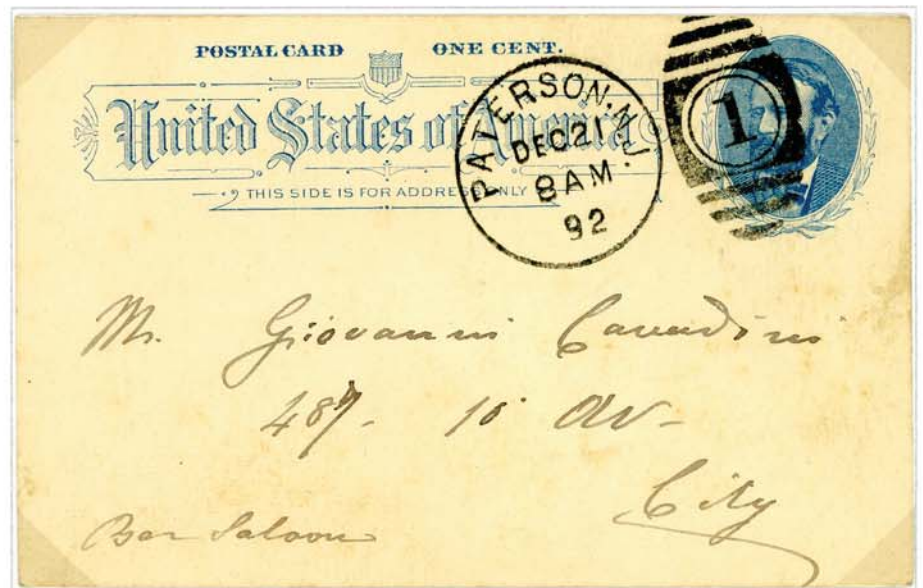 POSTAL CARD ONE CENT.
United States of America
THIS SIDE IS FOR ADDRESS ONLY
PATERSON. N.J.
DEC 21
8 AM
92
1
Mr. Giovanni Cavadini
487- 10 Av-
City
Bar Saloon